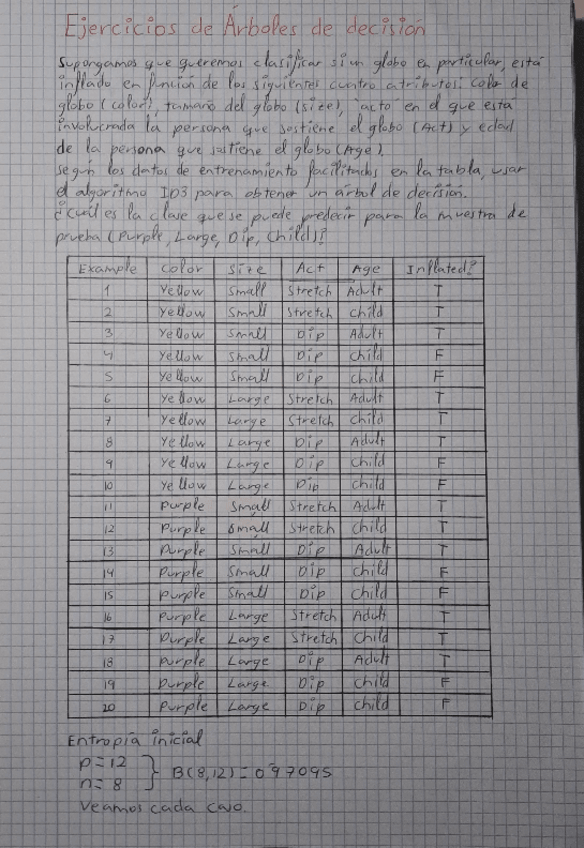 Ejercicios de Árboles de decisión
Supongamos que queremos clasificar si un globo en particular, está
inflado en función de los siguientes cuatro atributos: color de
globo (color), tamaño del globo (size), "acto" en el que está
involucrada la persona que sostiene el globo (Act) y edad
de la persona que sostiene el globo (Age).
Según los datos de entrenamiento facilitados en la tabla, usar
el algoritmo ID3 para obtener un árbol de decisión.
¿Cuál es la clase que se puede predecir para la muestra de
prueba (Purple, Large, Dip, Child)?
Example Color Size Act Age Inflated?
1 Yellow Small Stretch Adult T
2 Yellow Small Stretch Child T
3 Yellow Small Dip Adult T
4 Yellow Small Dip Child F
5 Yellow Small Dip Child F
6 Yellow Large Stretch Adult T
7 Yellow Large Stretch Child T
8 Yellow Large Dip Adult T
9 Yellow Large Dip Child F
10 Yellow Large Dip Child F
11 Purple Small Stretch Adult T
12 Purple Small Stretch Child T
13 Purple Small Dip Adult T
14 Purple Small Dip Child F
15 Purple Small Dip Child F
16 Purple Large Stretch Adult T
17 Purple Large Stretch Child T
18 Purple Large Dip Adult T
19 Purple Large Dip Child F
20 Purple Large Dip Child F
Entropía inicial
p=12
n=8 } B(8,12)=0'97095
Veamos cada caso.